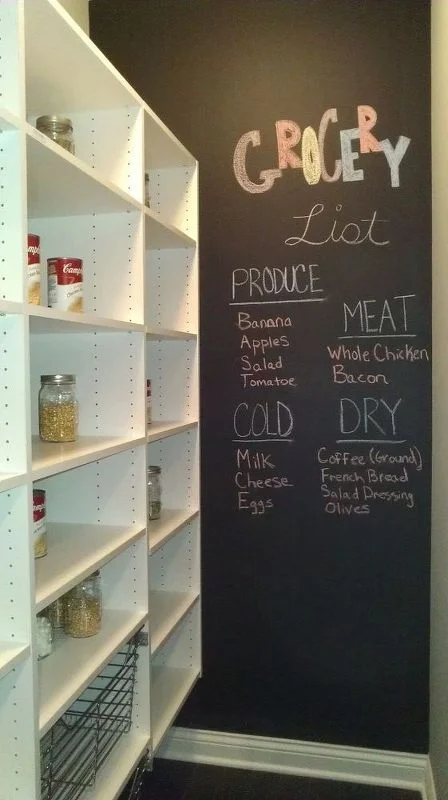 GROCERY
List
PRODUCE
Banana
Apples
Salad
Tomatoe
MEAT
Whole Chicken
Bacon
COLD
Milk
Cheese
Eggs
DRY
Coffee (Ground)
French Bread
Salad Dressing
Olives
Camp